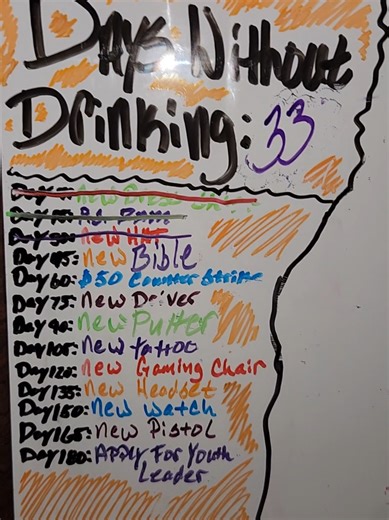 Days Without
Drinking: 33
Day new Dress
Day
Day 30: new HAT
Day 45: new Bible
Day 60: $50 Counter Strike
Day 75: new Driver
Day 90: new Putter
Day 105: new tattoo
Day 120: new Gaming Chair
Day 135: new Headset
Day 150: new watch
Day 165: new Pistol
Day 180: Apply For Youth
Leader